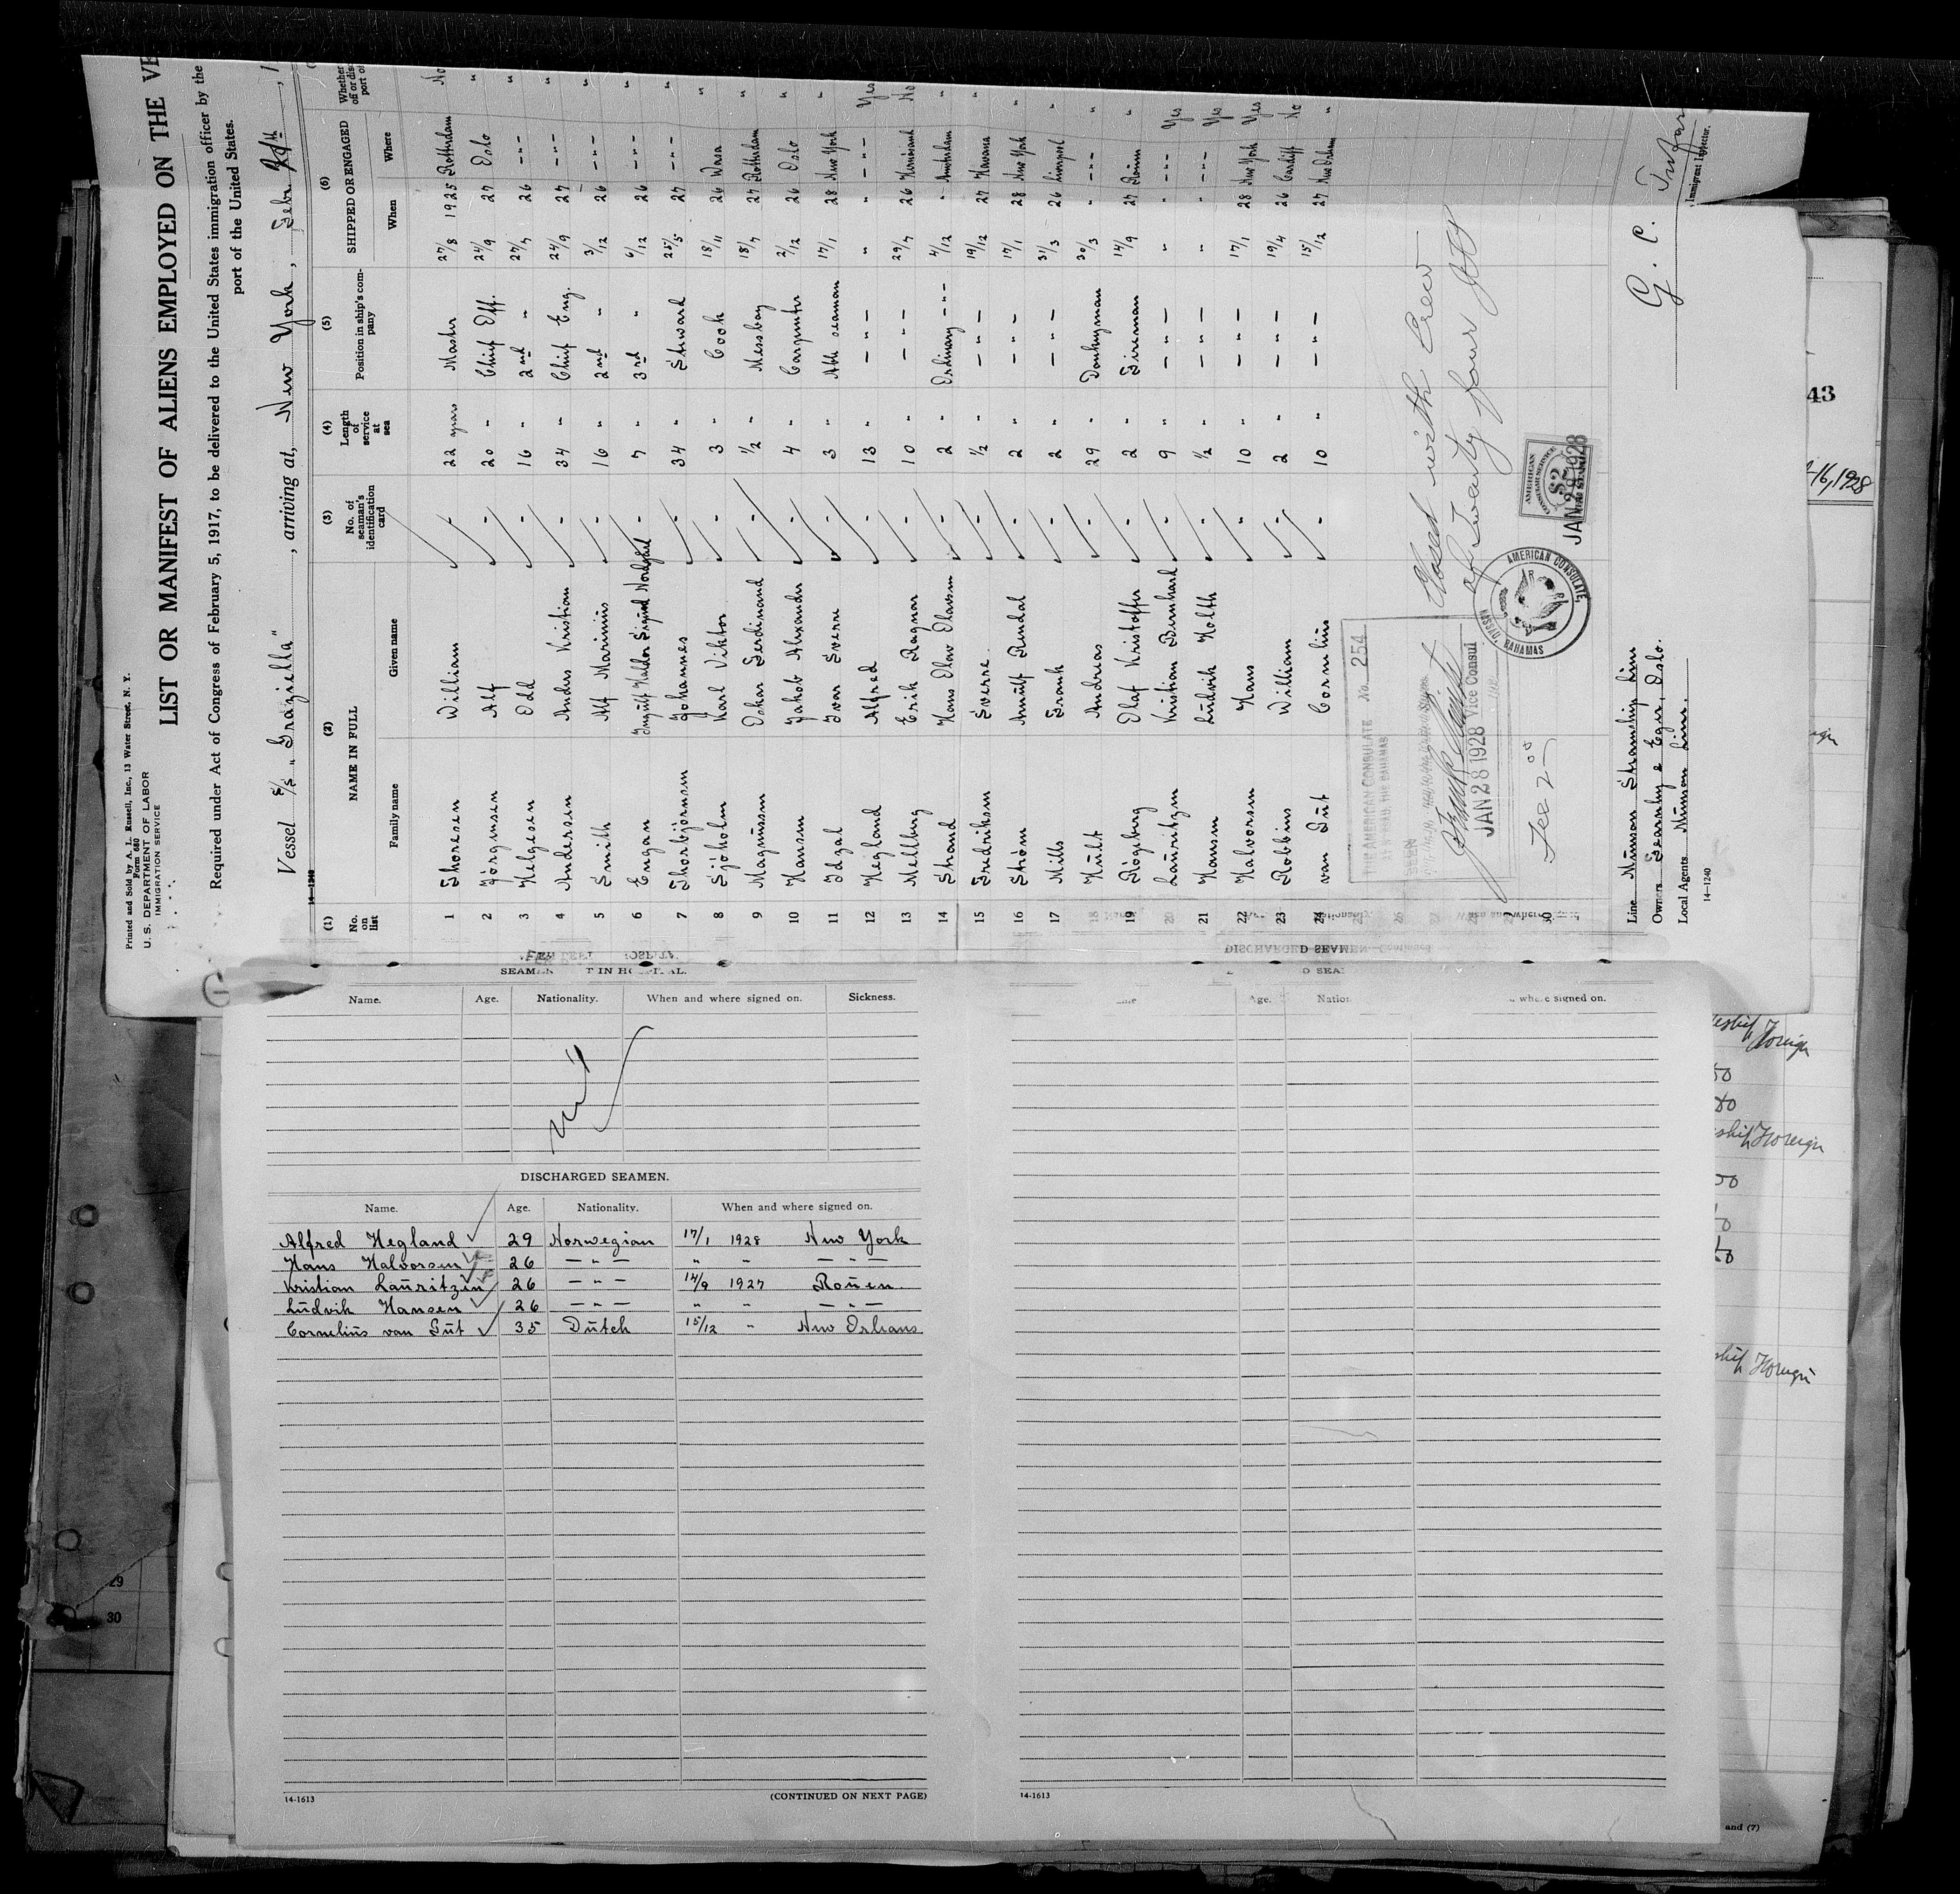 Printed and Sold by A. L. Russell, Inc., 13 Water Street, N. Y.
Form 680
U. S. DEPARTMENT OF LABOR
IMMIGRATION SERVICE
LIST OR MANIFEST OF ALIENS EMPLOYED ON THE VE
Required under Act of Congress of February 5, 1917, to be delivered to the United States immigration officer by the
port of the United States.
Vessel S/S "Graziella", arriving at, New York, Febr
14-1240
(1) No. on list (2) NAME IN FULL Family name Given name (3) No. of seaman's identification card (4) Length of service at sea (5) Position in ship's company (6) SHIPPED OR ENGAGED When Where
1 Thoresen William - 22 years Master 27/8 1925 Rotterdam No
2 Jörgensen Alf - 20 " Chief Off. 24/9 27 Oslo "
3 Helgesen Odd - 16 " 2nd " 27/7 26 -"- "
4 Andersen Anders Kristian - 34 " Chief Eng. 24/9 27 -"- "
5 Smith Alf Marinius - 16 " 2nd " 3/12 26 -"- "
6 Engan - 7 " 3rd " 6/12 26 -"- "
7 Thorbjörnsen Johannes - 34 " Steward 25/5 27 -"- "
8 Sjöholm Karl Viktor - 3 " Cook 18/11 26 Wasa "
9 Magnussen Oskar Ferdinand - ½ " Messboy 18/7 27 Rotterdam "
10 Hansen Jakob Alexander - 4 " Carpenter 2/12 26 Oslo "
11 Idgal Ivar Sverre - 3 " Able seaman 17/1 28 New York "
12 Hegland Alfred - 13 " -"- " " -"- Yes
13 Mellberg Erik Ragnar - 10 " -"- 29/7 26 No
14 Strand Hans Olav Olavsen - 2 " Ordinary -"- 4/12 " Amsterdam "
15 Fredriksen Sverre - ½ " -"- 19/12 27 Havana "
16 Ström Arnulf Rendal - 2 " -"- 17/1 28 New York "
17 Mills Frank - 2 " -"- 31/3 26 Liverpool "
18 Hult Andreas - 29 " Donkeyman 30/3 " -"- "
19 Rögeberg Olaf Kristoffer - 2 " Fireman 14/9 27 Rouen "
20 Lauritzen Kristian Bernhard - 9 " -"- " " -"- Yes
21 Hansen Ludvik Holth - ½ " -"- " " -"- Yes
22 Halvorsen Hans - 10 " -"- 17/1 28 New York Yes
23 Robbins William - 2 " -"- 19/4 26 Cardiff No
24 van Gut Cornelius - 10 " -"- 15/12 27 New Orleans "
30
THE AMERICAN CONSULATE No. 254
SEEN
JAN 28 1928 Vice Consul
Fee 2.00
Closed with Crew
of Twenty four
AMERICAN CONSULATE, NASSAU, BAHAMAS
AMERICAN CONSULAR SERVICE $2
JAN 28 1928
Line Munson Steamship Line
Owners Fearnley & Eger, Oslo.
Local Agents Munson Line.
14-1240
Immigrant Inspector.
SEAMEN LEFT IN HOSPITAL.
Name. Age. Nationality. When and where signed on. Sickness.
nil
DISCHARGED SEAMEN.
Name. Age. Nationality. When and where signed on.
Alfred Hegland 29 Norwegian 17/1 1928 New York
Hans Halvorsen 26 -"- " " -"-
Kristian Lauritzen 26 -"- 14/9 1927 Rouen.
Ludvik Hansen 26 -"- " " -"-
Cornelius van Gut 35 Dutch 15/12 " New Orleans
14-1613
(CONTINUED ON NEXT PAGE)
DISCHARGED SEAMEN—Continued
Age. where signed on.
14-1613
43
16, 1928
Foreign
Foreign
Foreign
and (7)
29
30